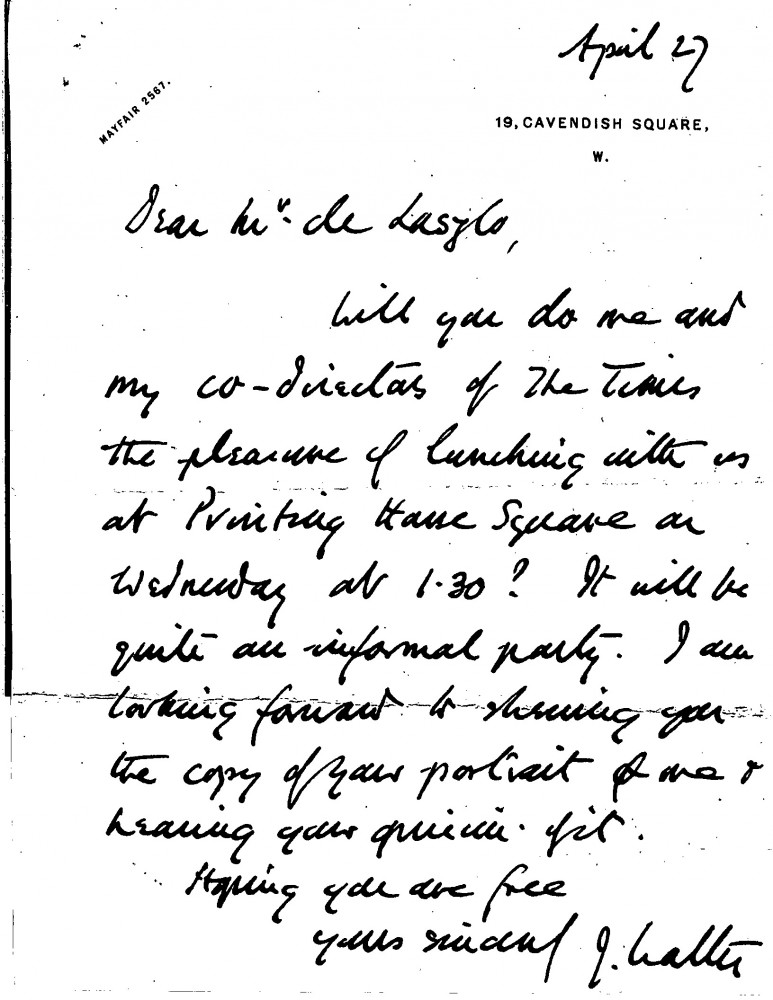 April 27
MAYFAIR 2567.
19, CAVENDISH SQUARE,
W.
Dear Mr. de Laszlo,
Will you do me and
my co-directors of The Times
the pleasure of lunching with us
at Printing House Square on
Wednesday at 1.30? It will be
quite an informal party. I am
looking forward to shewing you
the copy of your portrait of me &
hearing your opinion of it.
Hoping you are free
yours sincerely J. Walter